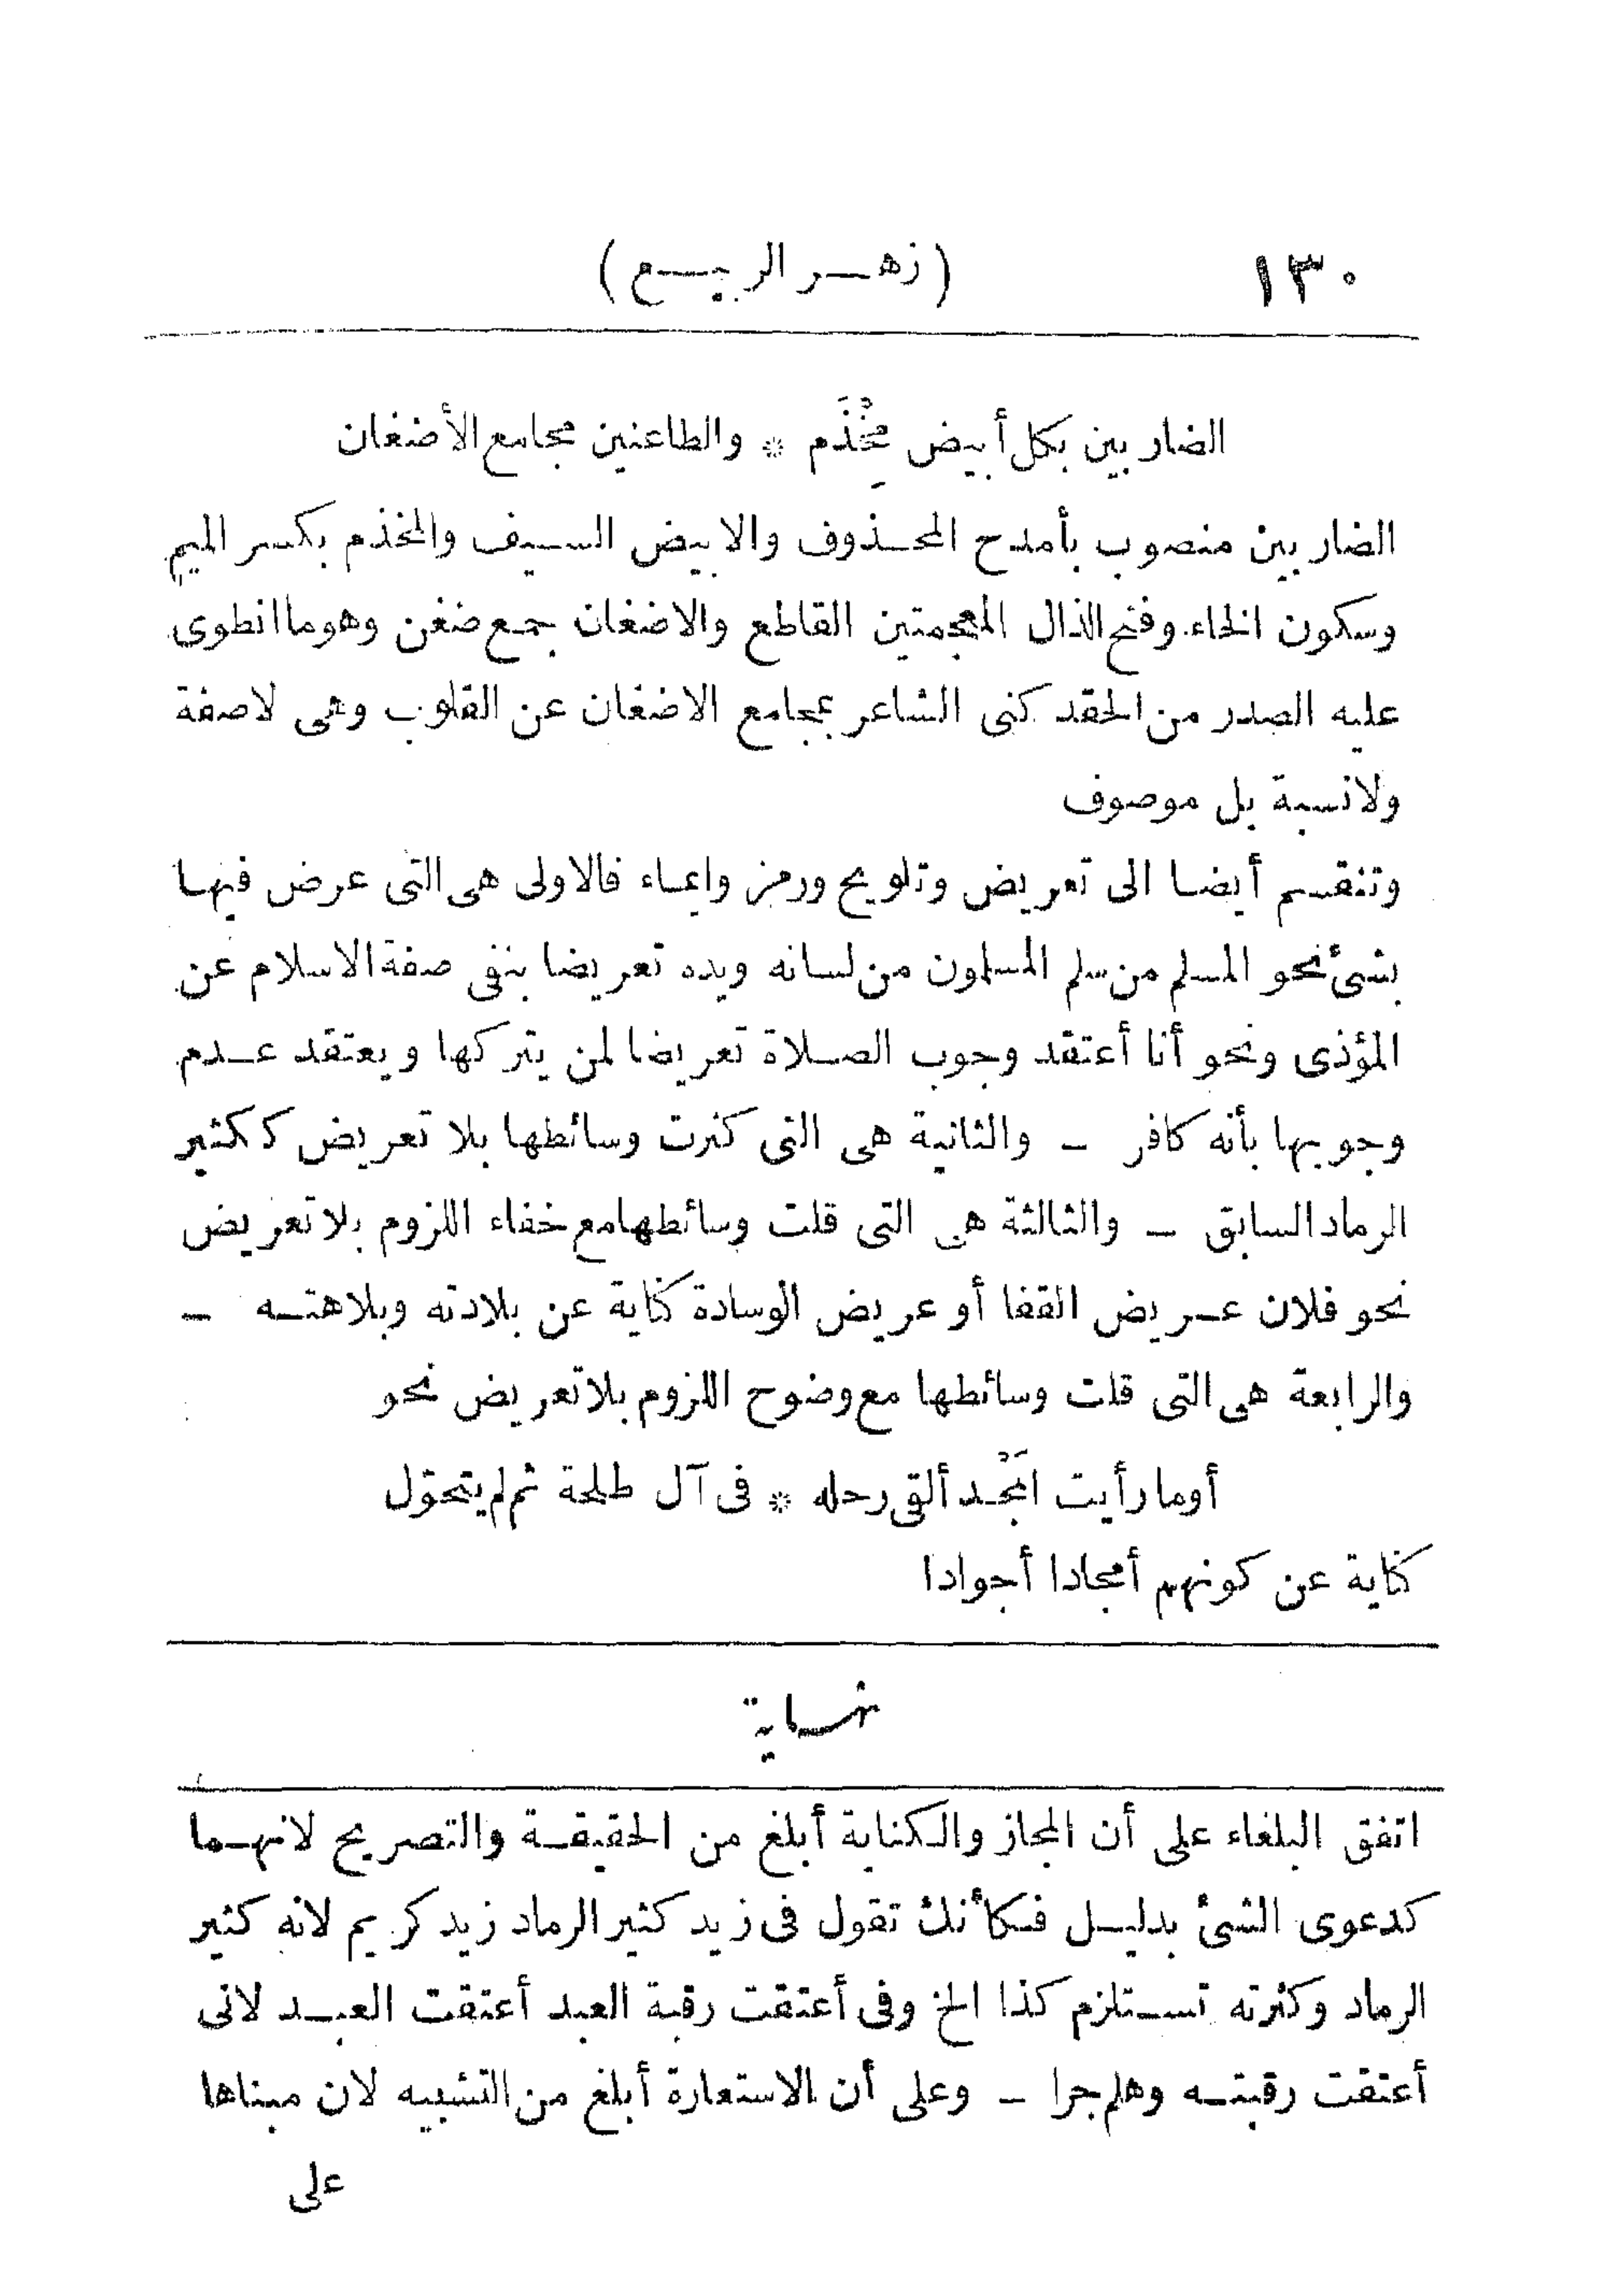 ١٣٠ (زهر الربيع)
الضاربين بكل أبيض مِخْذَم * والطاعنين مجامع الأضغان
الضاربين منصوب بأمدح المحذوف والابيض السيف والمخذم بكسر الميم
وسكون الخاء وفتح الذال المعجمتين القاطع والاضغان جمع ضغن وهوما انطوى
عليه الصدر من الحقد كنى الشاعر بمجامع الاضغان عن القلوب وهى لاصفة
ولانسبة بل موصوف
وتنقسم أيضا الى تعريض وتلويح ورمز وايماء فالاولى هى التى عرض فيها
بشئ نحو المسلم من سلم المسلمون من لسانه ويده تعريضا بنفى صفة الاسلام عن
المؤذى ونحو أنا أعتقد وجوب الصلاة تعريضا لمن يتركها ويعتقد عدم
وجوبها بأنه كافر – والثانية هى التى كثرت وسائطها بلا تعريض ككثير
الرماد السابق – والثالثة هى التى قلت وسائطها مع خفاء اللزوم بلا تعريض
نحو فلان عريض القفا أو عريض الوسادة كناية عن بلادته وبلاهته –
والرابعة هى التى قلت وسائطها مع وضوح اللزوم بلا تعريض نحو
أوما رأيت المَجْد ألقى رحله * فى آل طلحة ثم لم يتحوّل
كناية عن كونهم أمجادا أجوادا
نهاية
اتفق البلغاء على أن المجاز والكناية أبلغ من الحقيقة والتصريح لانهما
كدعوى الشئ بدليل فكأنك تقول فى زيد كثير الرماد زيد كريم لانه كثير
الرماد وكثرته تستلزم كذا الخ وفى أعتقت رقبة العبد أعتقت العبد لانى
أعتقت رقبته وهلم جرا – وعلى أن الاستعارة أبلغ من التشبيه لان مبناها
على